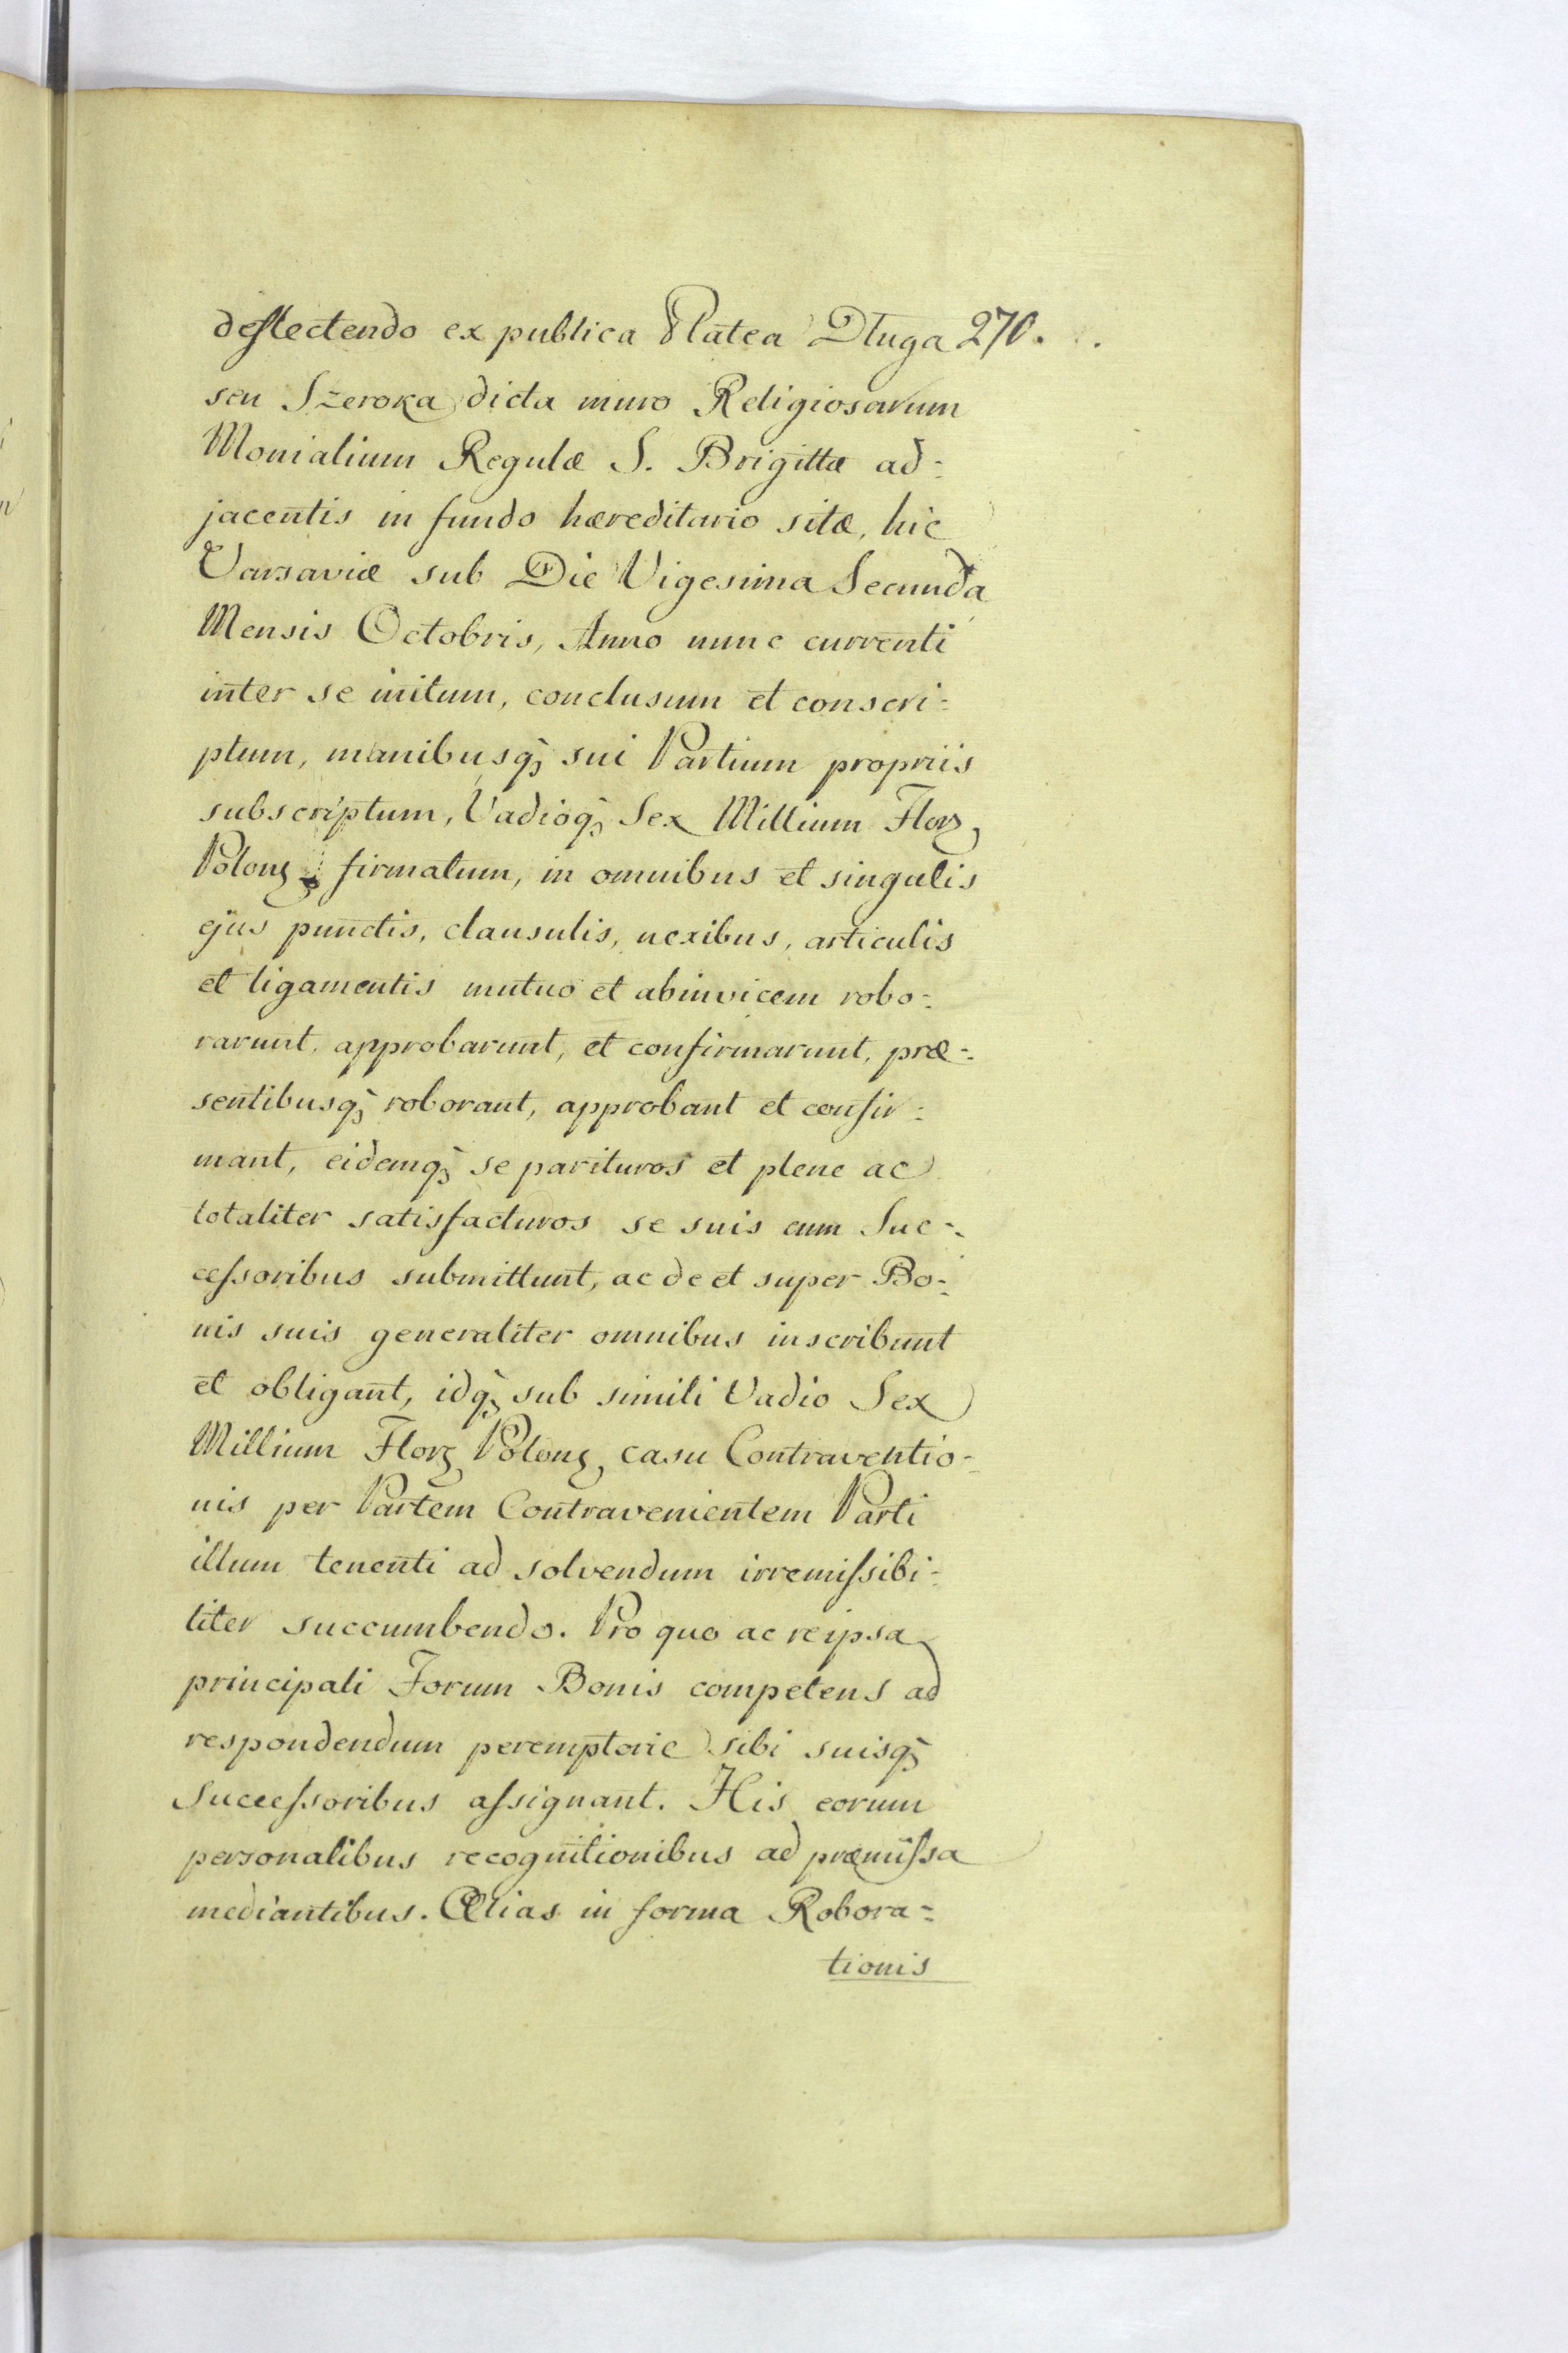 deflectendo ex publica Platea Długa 270.
seu Szeroka dicta muro Religiosarum
Monialium Regulæ S. Brigittæ ad=
jacentis in fundo hæreditario sitæ, hic
Varsaviæ sub Die Vigesima Secunda
Mensis Octobris, Anno nunc currenti
inter se initum, conclusum et conscri=
ptum, manibusq; sui Partium propriis
subscriptum, Vadioq; Sex Millium Flor;
Polon; firmatum, in omnibus et singulis
ejus punctis, clausulis, nexibus, articulis
et ligamentis mutuo et abinvicem robo=
rarunt, approbarunt, et confirmarunt, præ=
sentibusq; roborant, approbant et confir=
mant, eidemq; se parituros et plene ac
totaliter satisfacturos se suis cum Suc=
cessoribus submittunt, ac de et super Bo=
nis suis generaliter omnibus inscribunt
et obligant, idq; sub simili Vadio Sex
Millium Flor; Polon; casu Contraventio=
nis per Partem Contravenientem Parti
illum tenenti ad solvendum irremissibi=
liter succumbendo. Pro quo ac reipsa
principali Forum Bonis competens ad
respondendum peremptorie sibi suisq;
Successoribus assignant. His eorum
personalibus recognitionibus ad præmissa
mediantibus. Alias in forma Robora=
tionis